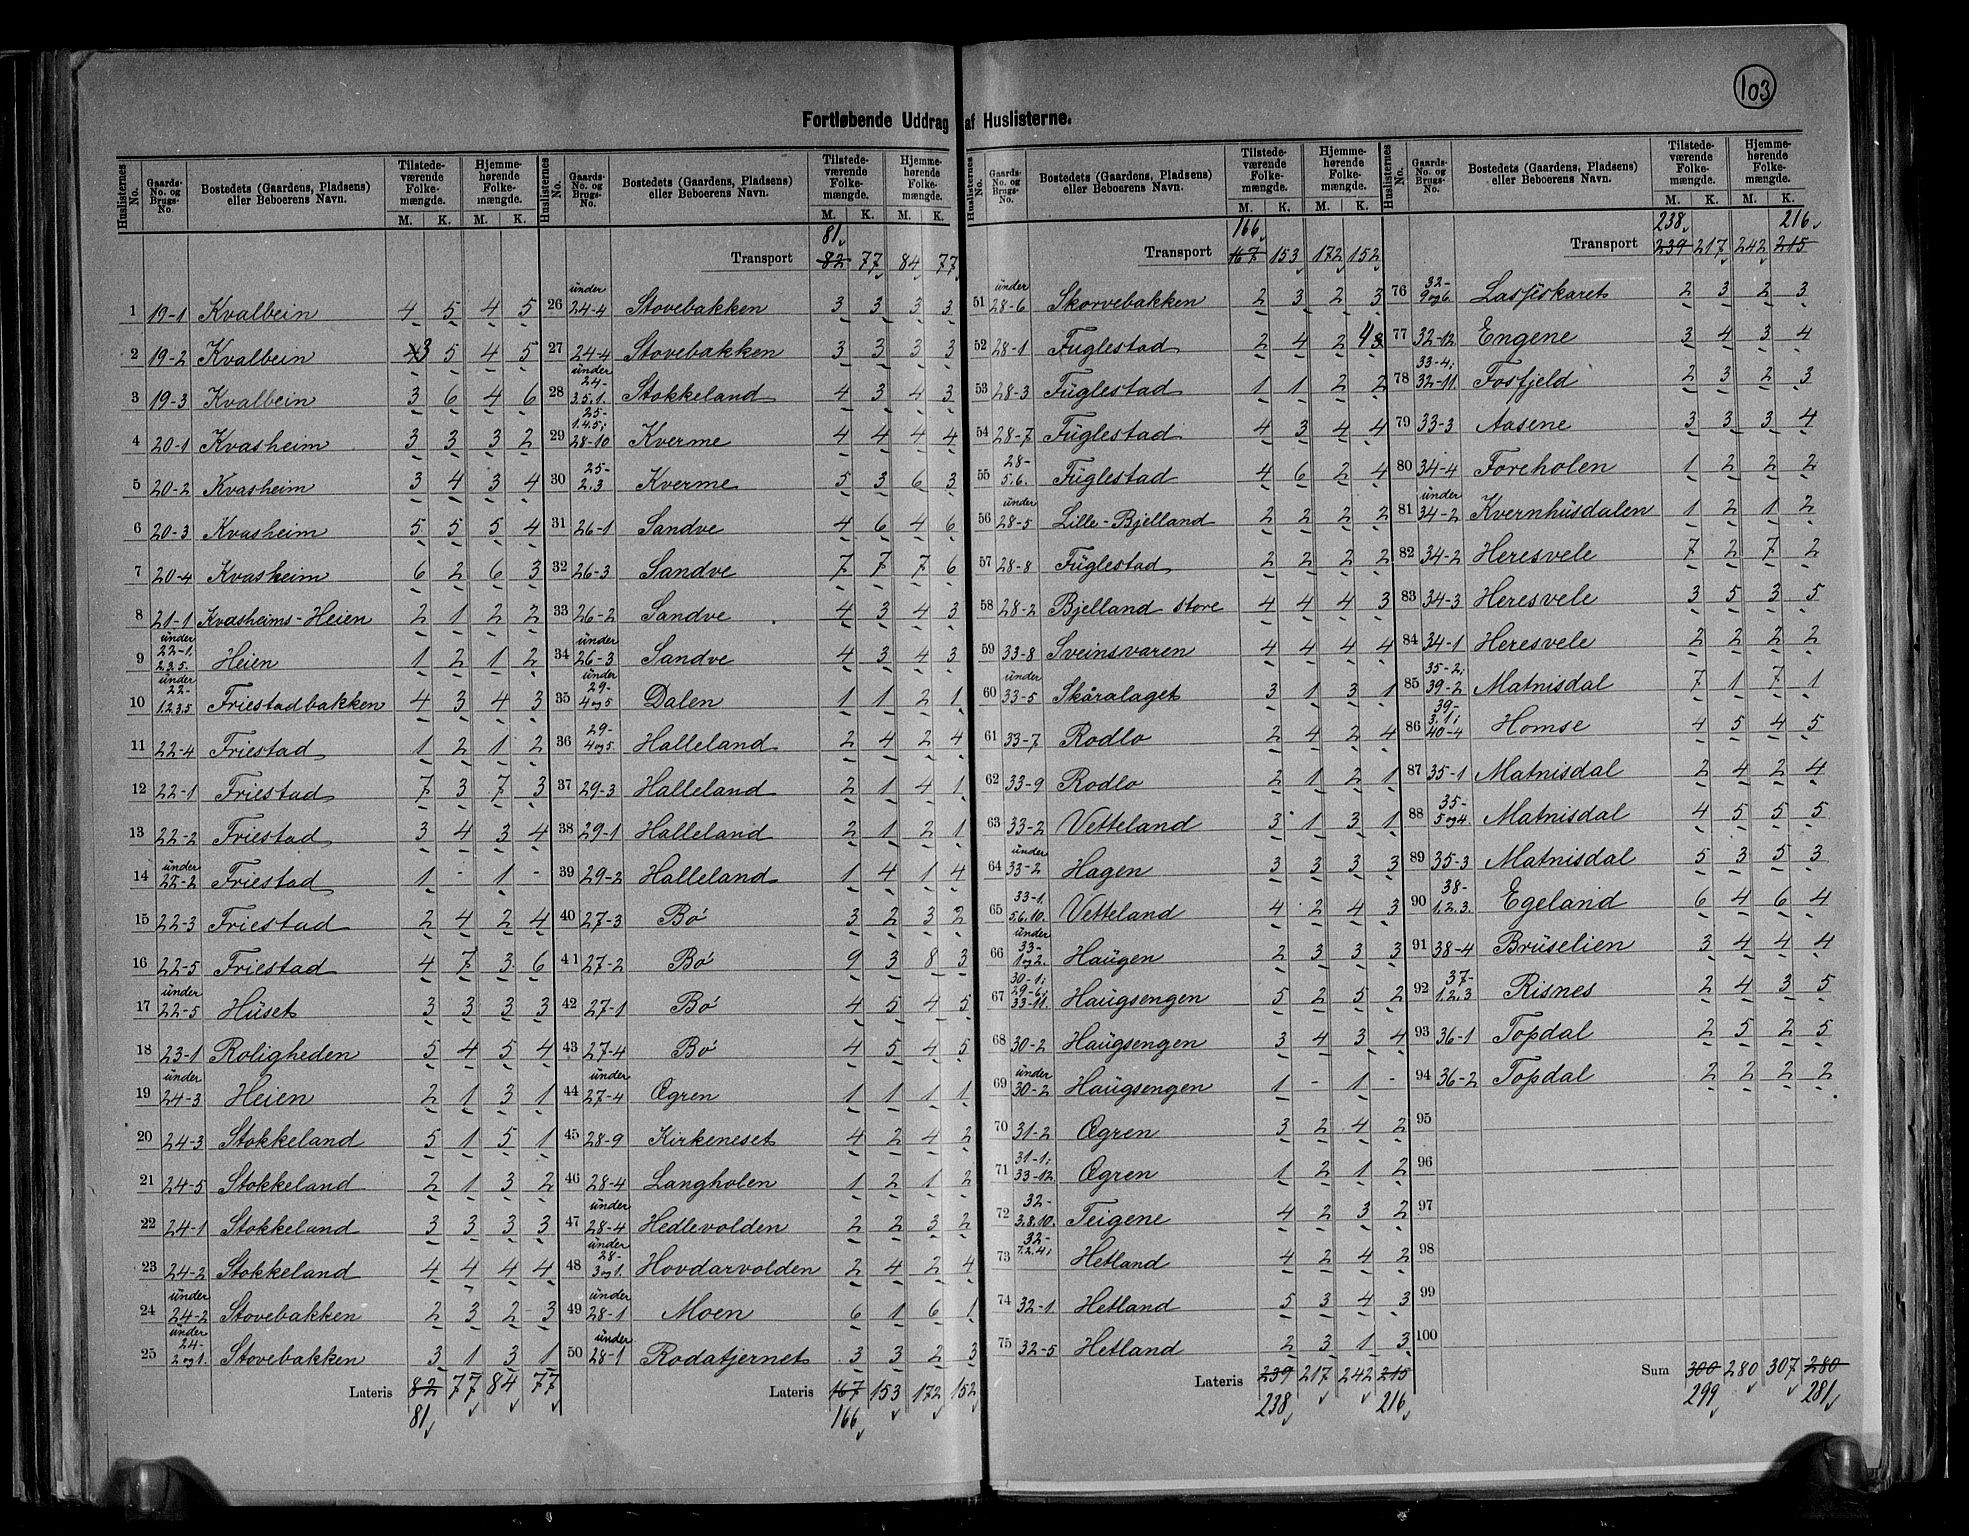 103
Fortløbende Uddrag af Huslisterne.
Huslisternes No. Gaards-No. og Brugs-No. Bostedets (Gaardens, Pladsens) eller Beboerens Navn. Tilstedeværende Folkemængde. M. K. Hjemmehørende Folkemængde. M. K.
1 19-1 Kvalbein 4 5 4 5
2 19-2 Kvalbein 3 5 4 5
3 19-3 Kvalbein 3 6 4 6
4 20-1 Kvasheim 3 3 3 2
5 20-2 Kvasheim 3 4 3 4
6 20-3 Kvasheim 5 5 5 4
7 20-4 Kvasheim 6 2 6 3
8 21-1 Kvasheims-Heien 2 1 2 2
9 under 22-1. 2.3.5. Heien 1 2 1 2
10 under 22- 1.2.3.5 Friestadbakken 4 3 4 3
11 22-4 Friestad 1 2 1 2
12 22-1 Friestad 7 3 7 3
13 22-2 Friestad 3 4 3 4
14 under 22-2 Friestad 1 - 1 -
15 22-3 Friestad 2 4 2 4
16 22-5 Friestad 4 7 3 6
17 under 22-5 Huset 3 3 3 3
18 23-1 Roligheden 5 4 5 4
19 under 24-3 Heien 2 1 3 1
20 24-3 Stokkeland 5 1 5 1
21 24-5 Stokkeland 2 1 3 2
22 24-1 Stokkeland 3 3 3 3
23 24-2 Stokkeland 4 4 4 4
24 under 24-2 Stovebakken 2 3 2 3
25 under 24- 2og1. Stovebakken 3 1 3 1
Lateris 82 77 84 77
81
Huslisternes No. Gaards-No. og Brugs-No. Bostedets (Gaardens, Pladsens) eller Beboerens Navn. Tilstedeværende Folkemængde. M. K. Hjemmehørende Folkemængde. M. K.
81
Transport 82 77 84 77
26 under 24-4 Stovebakken 3 3 3 3
27 24-4 Stovebakken 3 3 3 3
28 under 24- 3.5.1. Stokkeland 4 3 4 3
29 25- 1.4.5; 28-10 Kverme 4 4 4 4
30 25- 2.3 Kverme 5 3 6 3
31 26-1 Sandve 4 6 4 6
32 26-3 Sandve 7 7 7 6
33 26-2 Sandve 4 3 4 3
34 under 26-3 Sandve 4 3 4 3
35 under 29- 4og5 Dalen 1 1 2 1
36 29- 4og5. Halleland 2 4 2 4
37 29-3 Halleland 2 1 4 1
38 29-1 Halleland 2 1 2 1
39 29-2 Halleland 1 4 1 4
40 27-3 Bö 3 2 3 2
41 27-2 Bö 9 3 8 3
42 27-1 Bö 4 5 4 5
43 27-4 Bö 4 5 4 5
44 under 27-4 Ogren 1 1 1 1
45 28-9 Kirkeneset 4 2 4 2
46 28-4 Langholen 1 2 1 2
47 under 28-4 Hedlevolden 2 2 3 2
48 under 28- 3og1. Hovdarvolden 2 4 2 4
49 under 28-1 Moen 6 1 6 1
50 under 28-1 Rodatjernet 3 3 2 3
Lateris 167 153 172 152
166
Huslisternes No. Gaards-No. og Brugs-No. Bostedets (Gaardens, Pladsens) eller Beboerens Navn. Tilstedeværende Folkemængde. M. K. Hjemmehørende Folkemængde. M. K.
166
Transport 167 153 172 152
51 under 28-6 Skorvebakken 2 3 2 3
52 28-1 Fuglestad 2 4 2 4 3
53 28-3 Fuglestad 1 1 2 2
54 28-7 Fuglestad 4 3 4 4
55 28- 5.6. Fuglestad 4 6 2 4
56 under 28-5 Lille-Bjelland 2 2 2 2
57 28-8 Fuglestad 2 2 2 2
58 28-2 Bjelland store 4 4 4 3
59 33-8 Sveinsvaren 4 4 4 4
60 under 33-5 Skåralaget 3 1 3 1
61 33-7 Rodlo 2 4 2 4
62 33-9 Rodlo 2 1 2 1
63 33-2 Vetteland 3 1 3 1
64 under 33-2 Hagen 3 3 3 3
65 33-1. 5.6.10. Vetteland 4 2 4 3
66 under 33- 1og2. Haugen 2 3 3 3
67 30-1; 29-6; 33-11. Haugsengen 5 2 5 2
68 30-2 Haugsengen 3 4 3 4
69 under 30-2 Haugsengen 1 - 1 -
70 31-2 Ogren 3 2 4 2
71 31-1; 33-12 Ogren 1 2 1 2
72 32- 3.8.10. Teigene 4 2 3 2
73 32- 7.2.4; Hetland 4 2 4 2
74 32-1 Hetland 5 3 4 3
75 32-5 Hetland 2 3 1 3
Lateris 239 217 242 215
238 216
Huslisternes No. Gaards-No. og Brugs-No. Bostedets (Gaardens, Pladsens) eller Beboerens Navn. Tilstedeværende Folkemængde. M. K. Hjemmehørende Folkemængde. M. K.
238 216
Transport 239 217 242 215
76 32- 9og6. Lasfiskaret 2 3 2 3
77 32-12 Engene 3 4 3 4
78 33-4; 32-11. Fosfjeld 2 3 2 3
79 33-3 Aasene 3 3 3 4
80 34-4 Foreholen 1 2 2 2
81 under 34-2 Kvernhusdalen 1 2 1 2
82 34-2 Heresvele 7 2 7 2
83 34-3 Heresvele 3 5 3 5
84 34-1 Heresvele 2 2 2 2
85 35-2; 39-2 Matnisdal 7 1 7 1
86 39- 3.1; 40-4 Homse 4 5 4 5
87 35-1 Matnisdal 2 4 2 4
88 35- 5og4 Matnisdal 4 5 5 5
89 35-3 Matnisdal 5 3 5 3
90 38- 1.2.3. Egeland 6 4 6 4
91 38-4 Bruselien 3 4 4 4
92 37- 1.2.3 Risnes 2 4 3 5
93 36-1 Topdal 2 5 2 5
94 36-2 Topdal 2 2 2 2
95
96
97
98
99
100
Sum 300 280 307 280
299 281